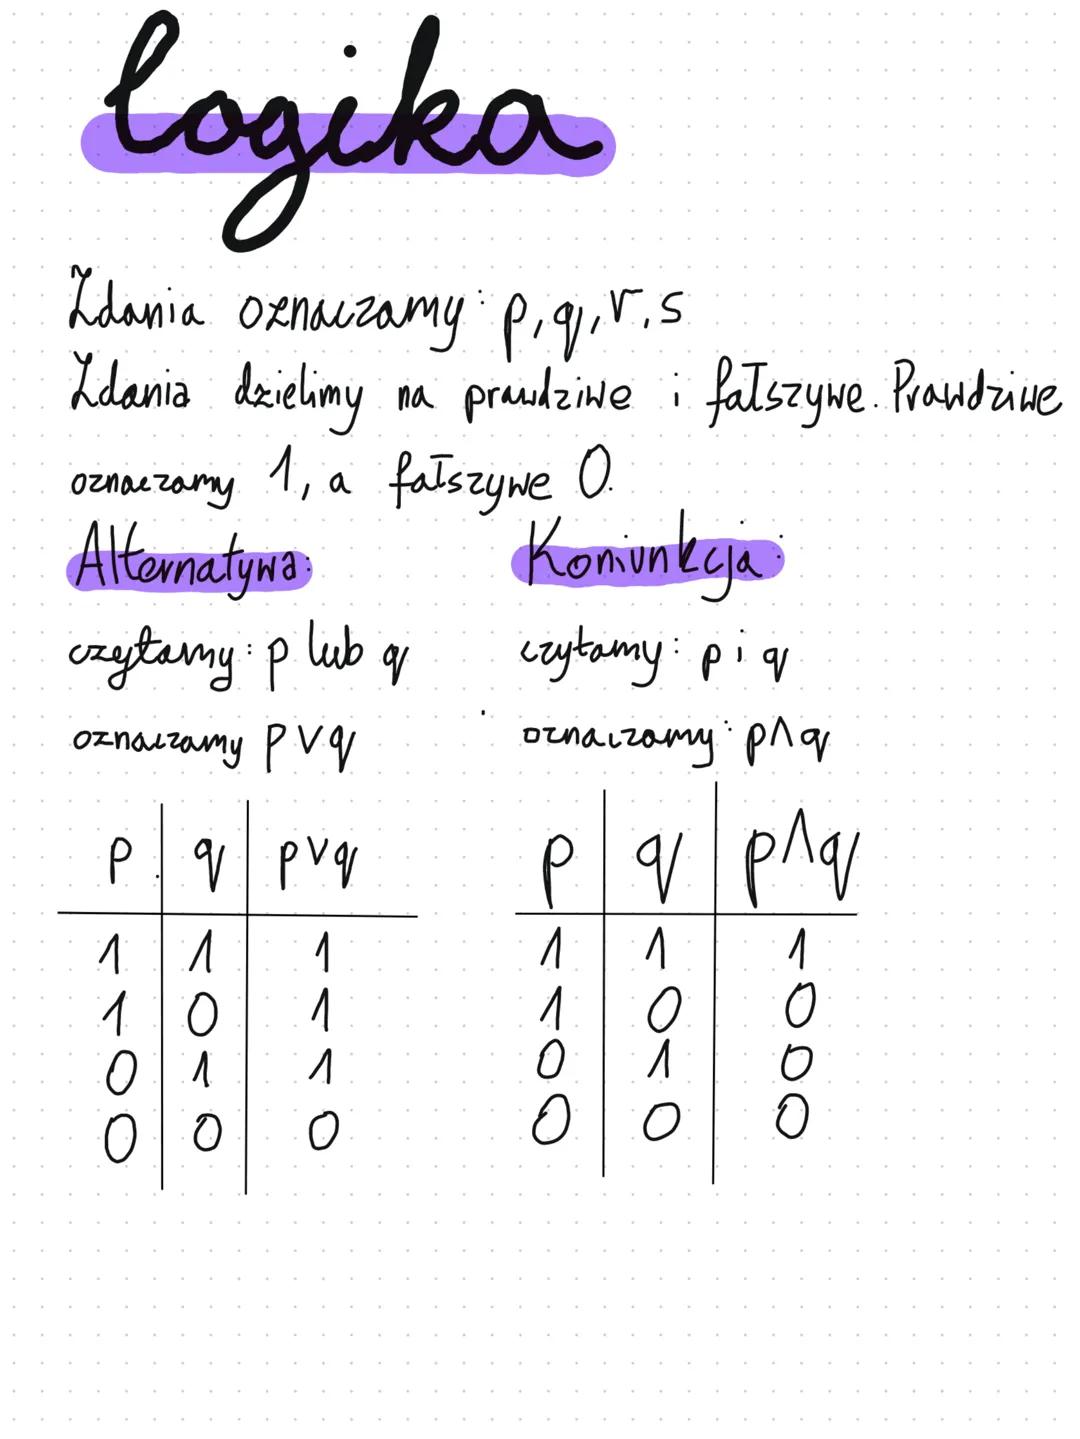 logika
Zdania oznaczamy: p, q, r, s
Zdania dzielimy na prawdziwe i fałszywe. Prawdziwe
oznaczamy 1, a fałszywe 0.
Alternatywa:
czytamy: p lub q
oznaczamy p ∨ q
p q p ∨ q
1 1 1
1 0 1
0 1 1
0 0 0
Koniunkcja:
czytamy: p i q
oznaczamy: p ∧ q
p q p ∧ q
1 1 1
1 0 0
0 1 0
0 0 0